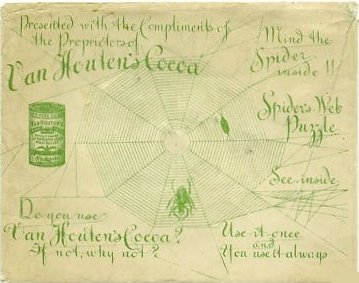 Presented with the Compliments of
the Proprietors of
Van Houten's Cocoa
Mind the
Spider
inside !!
Spider's Web
Puzzle
See inside
VAN HOUTEN'S
Do you use
Van Houten's Cocoa?
If not, why not?
Use it once
and
You use it always